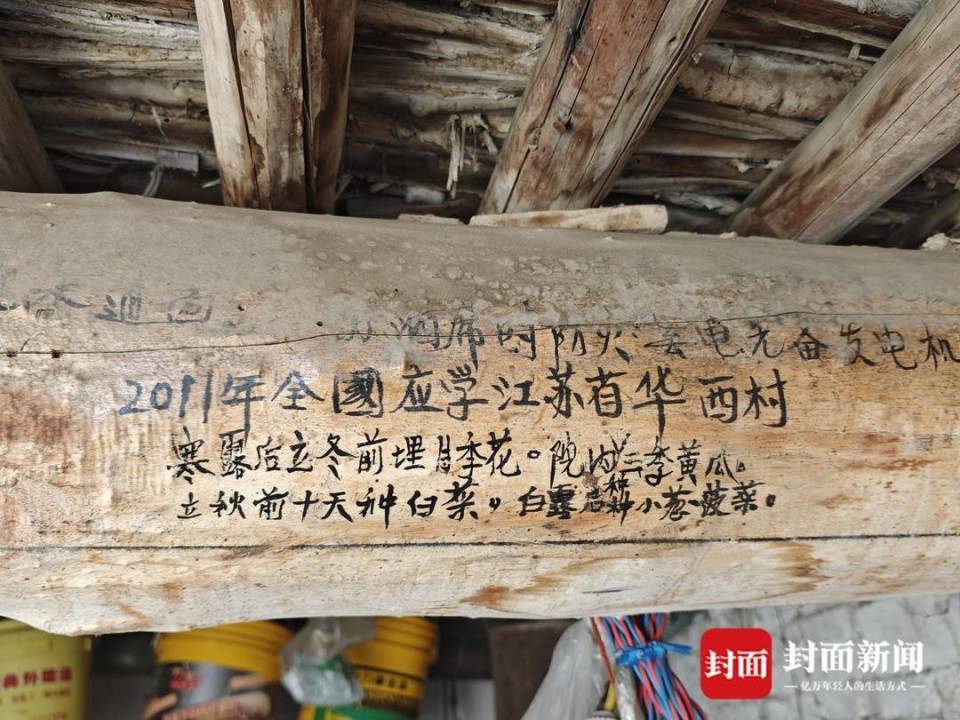 通向
席时防火 电先备发电机
2011年全國应学江苏省华西村
寒露后立冬前埋月季花。院内种三季黄瓜。
立秋前十天种白菜。白露后种小葱菠菜。
封面 封面新闻
亿万年轻人的生活方式